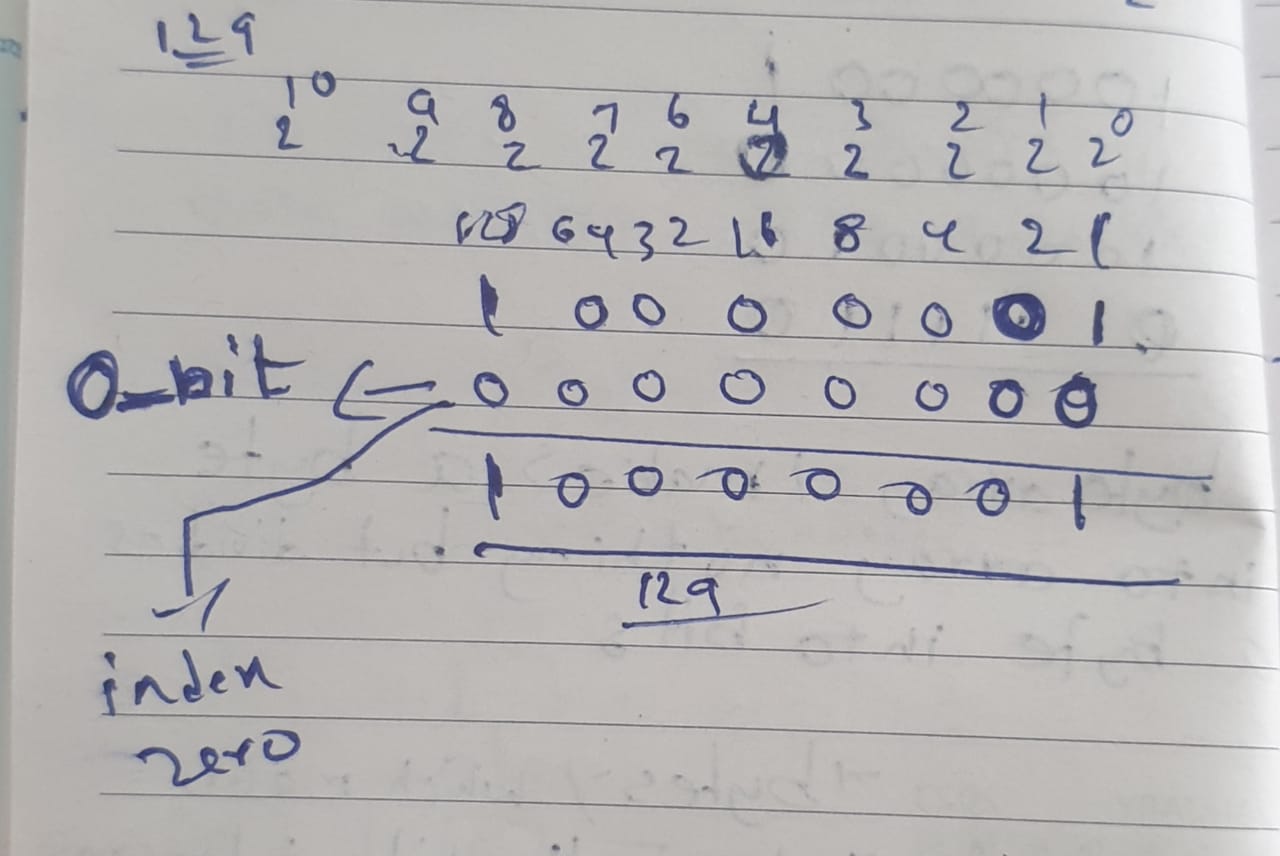 129
10 9 8 7 6 4 3 2 1 0
2 2 2 2 2 2 2 2 2 2
128 64 32 16 8 4 2 1
1 0 0 0 0 0 0 1
0-bit ← 0 0 0 0 0 0 0 0
1 0 0 0 0 0 0 1
129
index
zero